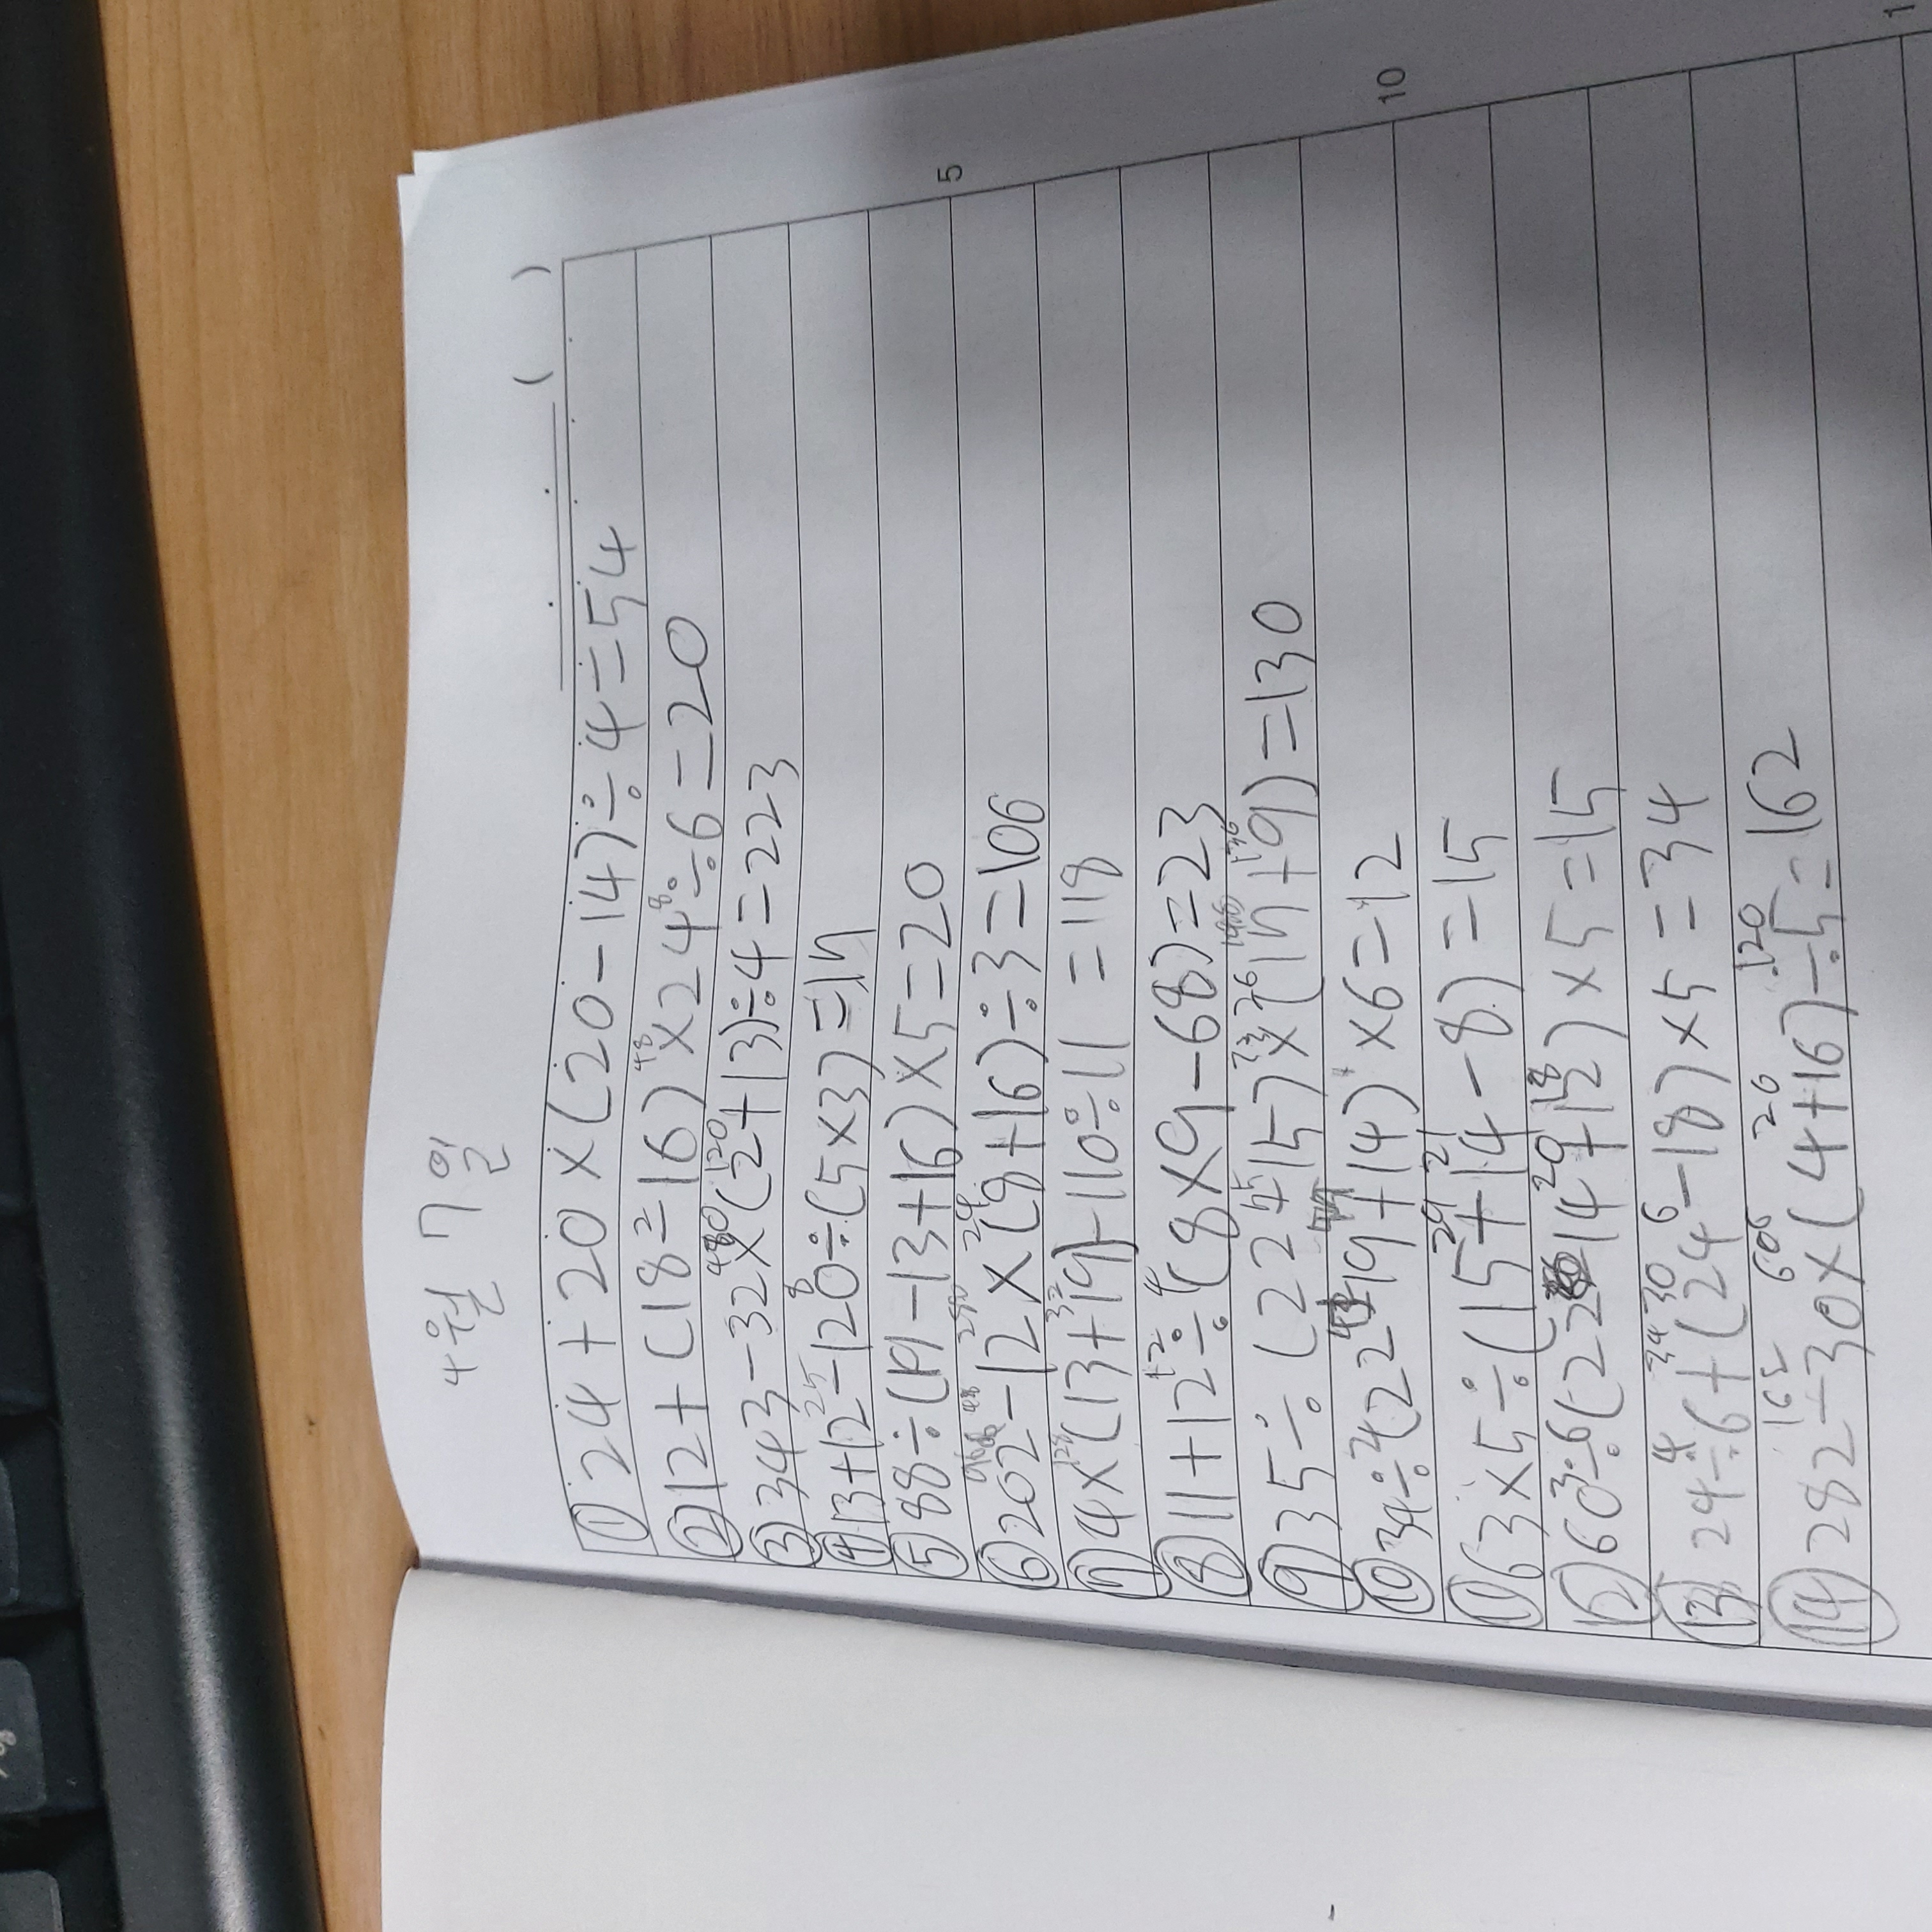 4월 7일
. . ( )
① 24+20×(20-14)÷4=54
② 12+(18-16)×24÷6=20
③ 343-32×(2+13)÷4=223
④ 13+12-120÷(5×3)=17
⑤ 88÷(19-13+16)×5=20
5
⑥ 202-12×(8+16)÷3=106
⑦ 4×(13+19)-110÷11=118
⑧ 11+12÷(8×9-68)=23
⑨ 35÷(22-15)×(17+9)=130
⑩ 34÷(22-19+14)×6=12
10
⑪ 63×5÷(15+14-8)=15
⑫ 60÷(22-14+12)×5=15
⑬ 24÷6+(24-18)×5=34
⑭ 282-30×(4+16)÷5=162